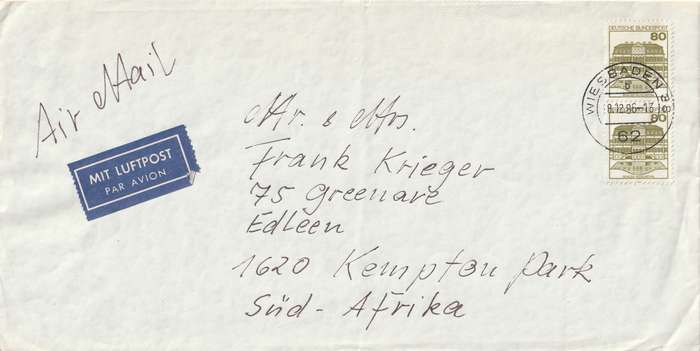 Air Mail
MIT LUFTPOST
PAR AVION
DEUTSCHE BUNDESPOST
80
WIESBADEN
62
80
Mr. & Mrs.
Frank Krieger
75 Greenare
Edleen
1620 Kempton Park
Süd-Afrika